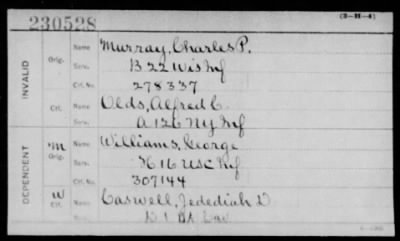 230528
(3-11-4)
INVALID
Orig.
Name Murray, Charles P.
Serv. B 22 Wis Inf
Ctf. No. 278337
Ctf.
Name Olds, Alfred C.
Serv. A 126 NY Inf
DEPENDENT
M
Orig.
Name Williams, George
Serv. H 16 USC Inf
Ctf. No. 307144
W
Ctf.
Name Caswell, Jedediah D
Serv. D 1 Cav